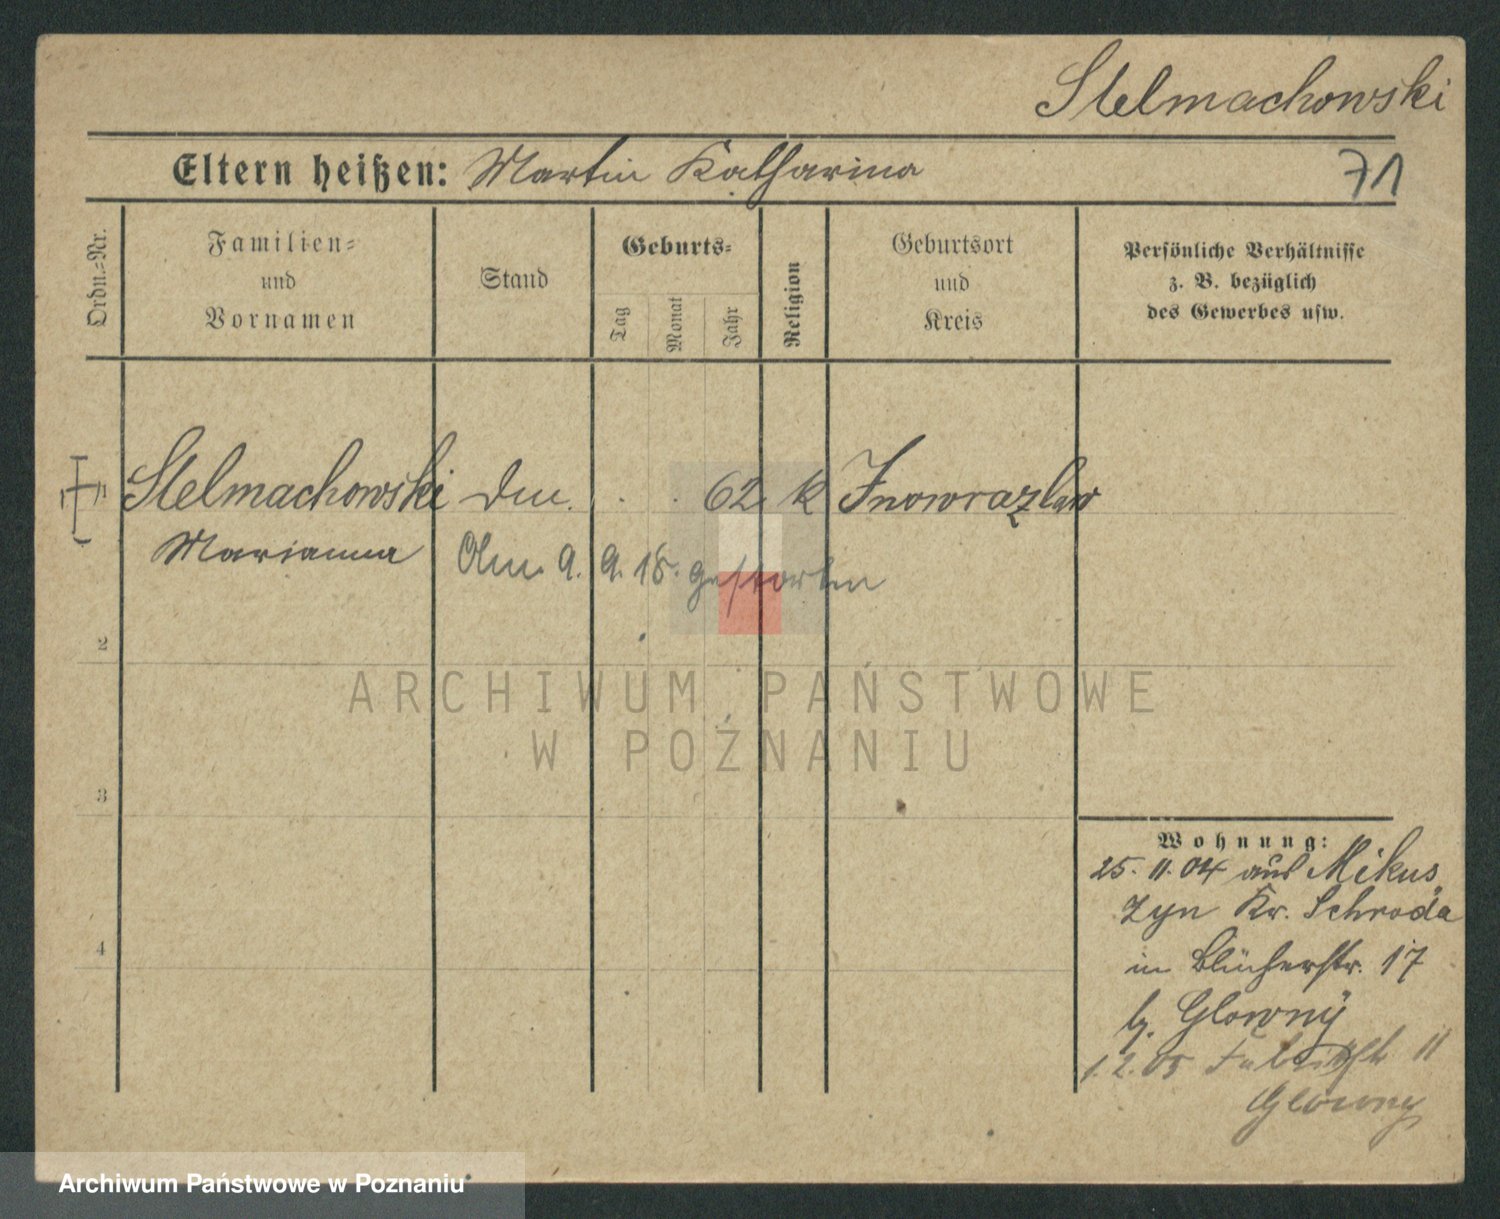 Stelmachowski
Eltern heißen: Martin Katharina
71
Ordn.-Nr.
Familien-
und
Vornamen
Stand
Geburts-
Tag
Monat
Jahr
Religion
Geburtsort
und
Kreis
Persönliche Verhältnisse
z. B. bezüglich
des Gewerbes usw.
1 Stelmachowski 62. k Inowrazlaw
Marianna 9. 9. 15. gestorben
2
3
4
ARCHIWUM PAŃSTWOWE
W POZNANIU
Wohnung:
25. 11. 04 aus Mikus
zyn Kr. Schroda
in Blücherstr. 17
b. Glowny
1. 2. 05 11
Glowny
Archiwum Państwowe w Poznaniu